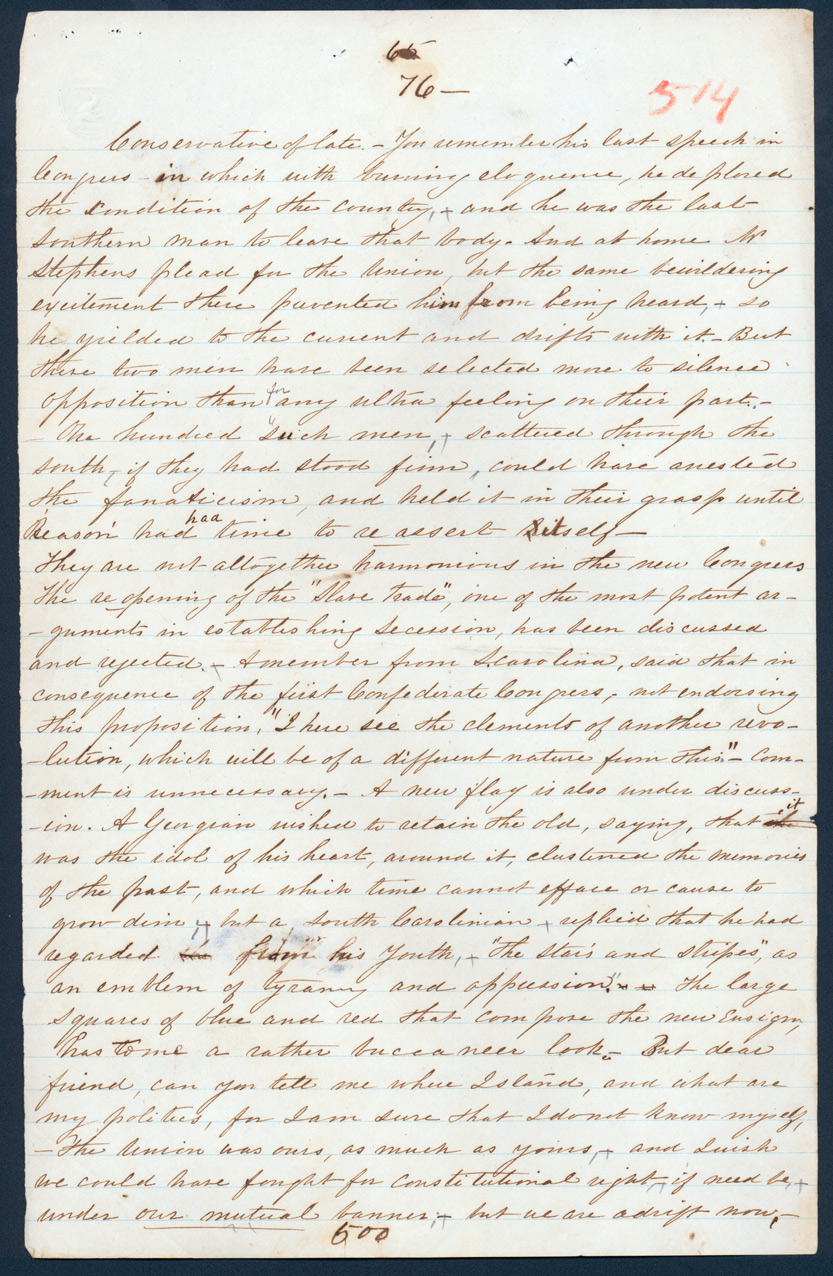 65
76 —
514
Conservative of late. - You remember his last speech in
Congress - in which with burning eloquence, he deplored
the condition of the country, + and he was the last
southern man to leave that body. And at home Mr
Stephens plead for the Union, but the same bewildering
excitement there prevented him from being heard, + so
he yielded to the current and drifts with it. - But
these two men have been selected more to silence
opposition than for any ultra feeling on their part. -
- One hundred such men, + scattered through the
south, if they had stood firm, could have arrested
the fanaticism, and held it in their grasp until
'Reason' had had time to re assert itself —
They are not altogether harmonious in the new Congress
The re opening of the "Slave trade", one of the most potent ar-
-guments in establishing secession, has been discussed
and rejected. + A member from S Carolina, said that in
consequence of the first Confederate Congress, - not endorsing
this proposition, "I here see the elements of another revo-
-lution, which will be of a different nature from this." - Com-
-ment is unnecessary. - A new flag is also under discuss-
-ion. A Georgian wished to retain the old, saying, that it
was the idol of his heart, around it, clustered the memories
of the past, and which time cannot efface or cause to
grow dim, + but a South Carolinian + replied that he had
regarded from his youth, + "the stars and stripes", as
an emblem of tyranny and oppression." - The large
squares of blue and red that compose the new Ensign,
has to me a rather buccaneer look. - But dear
friend, can you tell me where I stand, and what are
my politics, for I am sure that I do not know myself,
- The Union was ours, as much as yours, + and I wish
we could have fought for constitutional right, if need be, +
under our mutual banner, + but we are adrift now, -
500